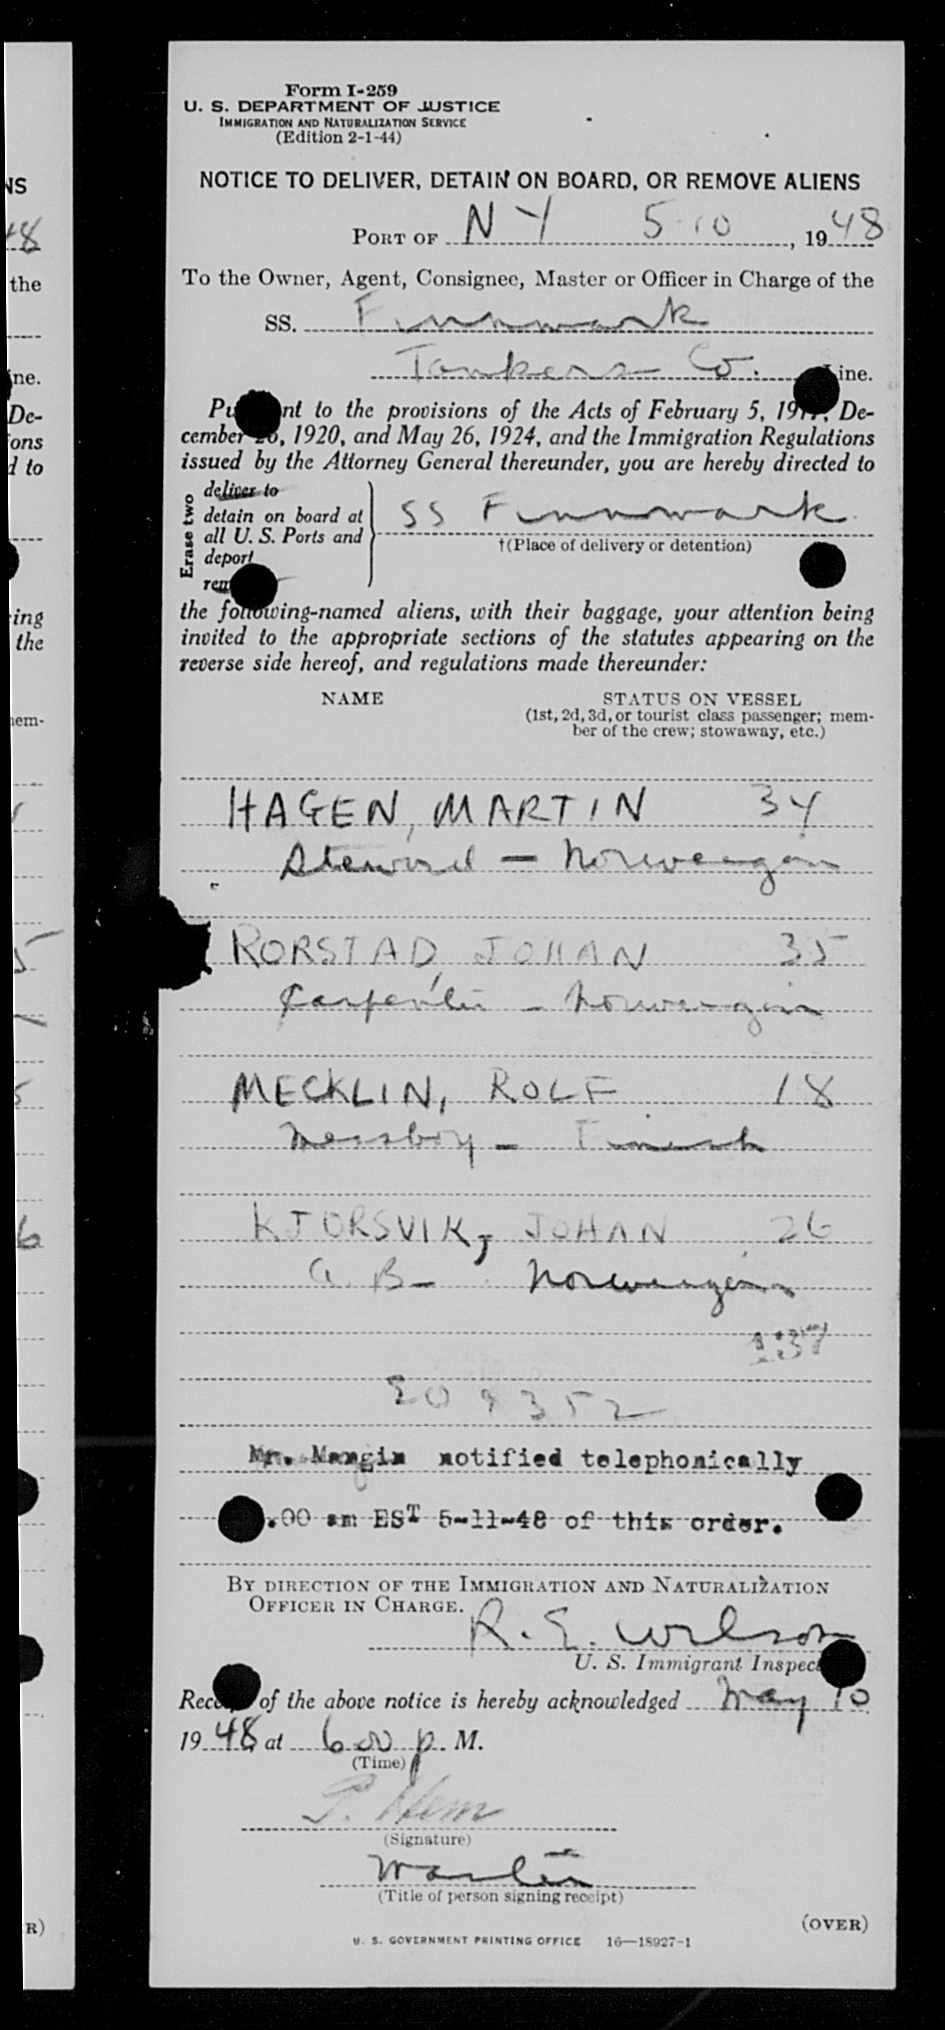 Form I-259
U. S. DEPARTMENT OF JUSTICE
IMMIGRATION AND NATURALIZATION SERVICE
(Edition 2-1-44)
NOTICE TO DELIVER, DETAIN ON BOARD, OR REMOVE ALIENS
PORT OF N Y 5-10, 1948
To the Owner, Agent, Consignee, Master or Officer in Charge of the
SS. Finnmark
Tankers Co. Line.
Pu nt to the provisions of the Acts of February 5, 1917, De-
cember 26, 1920, and May 26, 1924, and the Immigration Regulations
issued by the Attorney General thereunder, you are hereby directed to
Erase two
deliver to
detain on board at
all U. S. Ports and
deport
rem
SS Finnmark
†(Place of delivery or detention)
the following-named aliens, with their baggage, your attention being
invited to the appropriate sections of the statutes appearing on the
reverse side hereof, and regulations made thereunder:
NAME STATUS ON VESSEL
(1st, 2d, 3d, or tourist class passenger; mem-
ber of the crew; stowaway, etc.)
HAGEN, MARTIN 34
Steward — Norwegian
RORSTAD, JOHAN 35
Carpenter - Norwegian
MECKLIN, ROLF 18
Messboy - Finnish
KJORSVIK, JOHAN 26
A. B- Norwegian
Mr. Mangin notified telephonically
.00 am EST 5-11-48 of this order.
BY DIRECTION OF THE IMMIGRATION AND NATURALIZATION
OFFICER IN CHARGE.
R. E. Wilson
U. S. Immigrant Inspec
Rece of the above notice is hereby acknowledged May 10
1948 at 6 00 p. M.
(Time)
P. Hem
(Signature)
Master
(Title of person signing receipt)
(OVER)
U. S. GOVERNMENT PRINTING OFFICE 16—18927-1
NS
48
the
ine.
De-
ons
d to
ing
the
nem-
5
5
6
R)